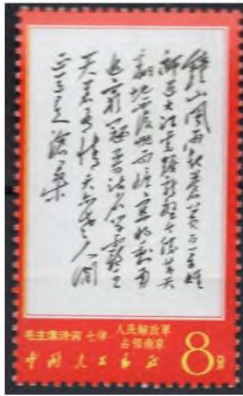 鐘山風雨起蒼黃百万雄
師過大江虎踞龍盤今勝昔天
翻地覆慨而慷宜將剩勇
追窮寇不可沽名學霸王
天若有情天亦老人間
正道是滄桑
毛主席诗词 七律·人民解放军
占领南京
中国人民邮政
8分